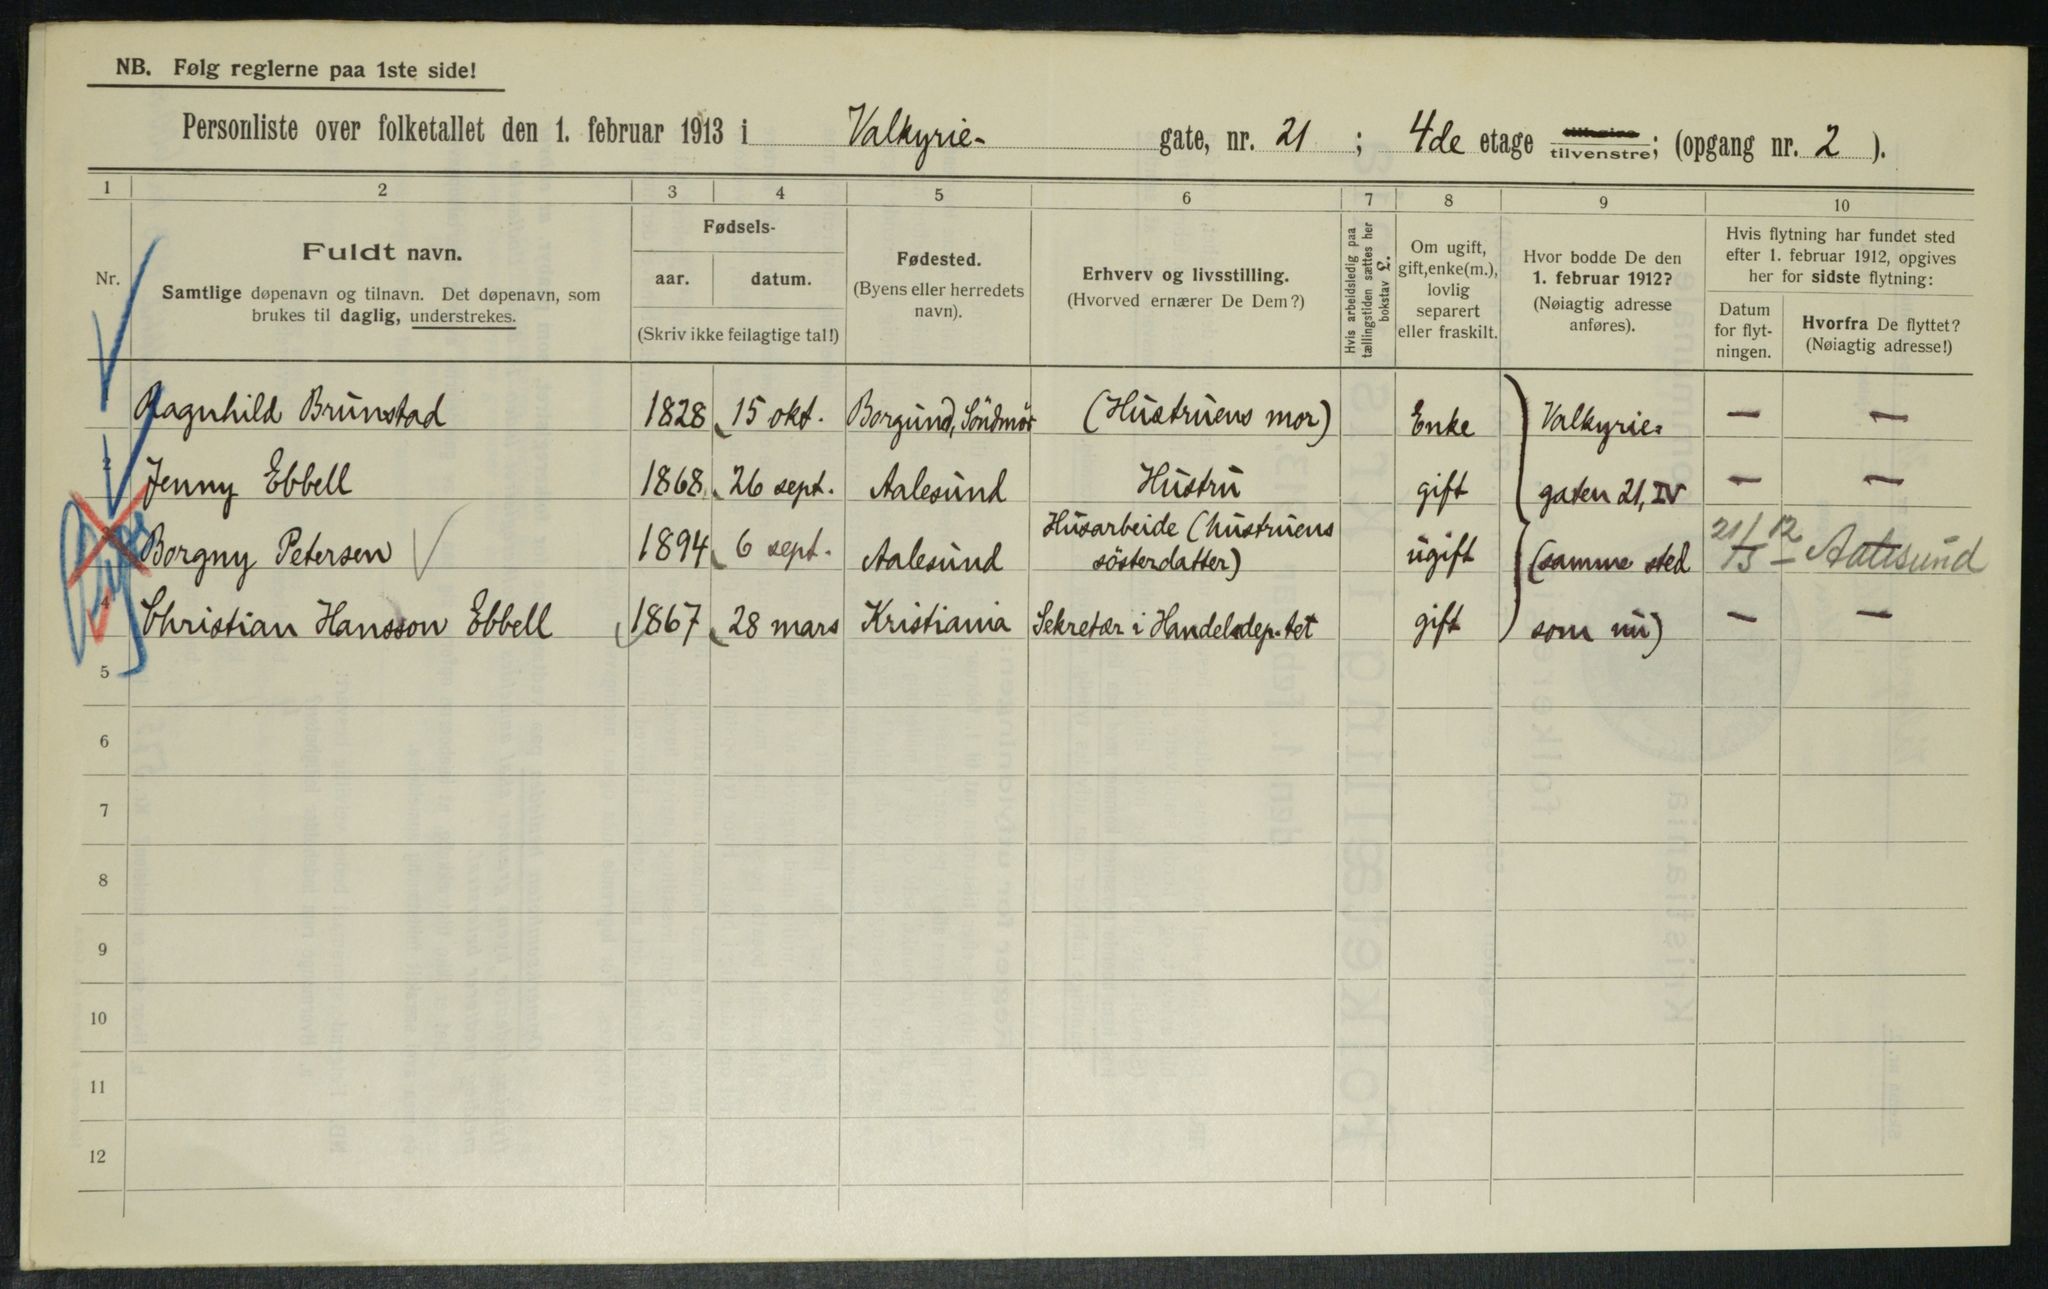 NB. Følg reglerne paa 1ste side!
Personliste over folketallet den 1. februar 1913 i Valkyrie- gate, nr. 21 ; 4de etage tilhøire tilvenstre; (opgang nr. 2 ).
1 2 3 4 5 6 7 8 9 10
Nr.
Fuldt navn.
Samtlige døpenavn og tilnavn. Det døpenavn, som
brukes til daglig, understrekes.
Fødsels-
aar. datum.
(Skriv ikke feilagtige tal!)
Fødested.
(Byens eller herredets
navn).
Erhverv og livsstilling.
(Hvorved ernærer De Dem?)
Hvis arbeidsledig paa
tællingstiden sættes her
bokstav L.
Om ugift,
gift, enke(m.),
lovlig
separert
eller fraskilt.
Hvor bodde De den
1. februar 1912?
(Nøiagtig adresse
anføres).
Hvis flytning har fundet sted
efter 1. februar 1912, opgives
her for sidste flytning:
Datum
for flyt-
ningen.
Hvorfra De flyttet?
(Nøiagtig adresse!)
Ragnhild Brunstad 1828 15 okt. Borgund, Söndmör (Hustruens mor) Enke Valkyrie- — —
2 Jenny Ebbell 1868 26 sept. Aalesund Hustru gift gaten 21, IV — —
3 Borgny Petersen 1894 6 sept. Aalesund Husarbeide (hustruens
sösterdatter) ugift (samme sted Aalesund
4 Christian Hansson Ebbell 1867 28 mars Kristiania Sekretær i Handelsdep-tet gift som nu) — —
5
6
7
8
9
10
11
12